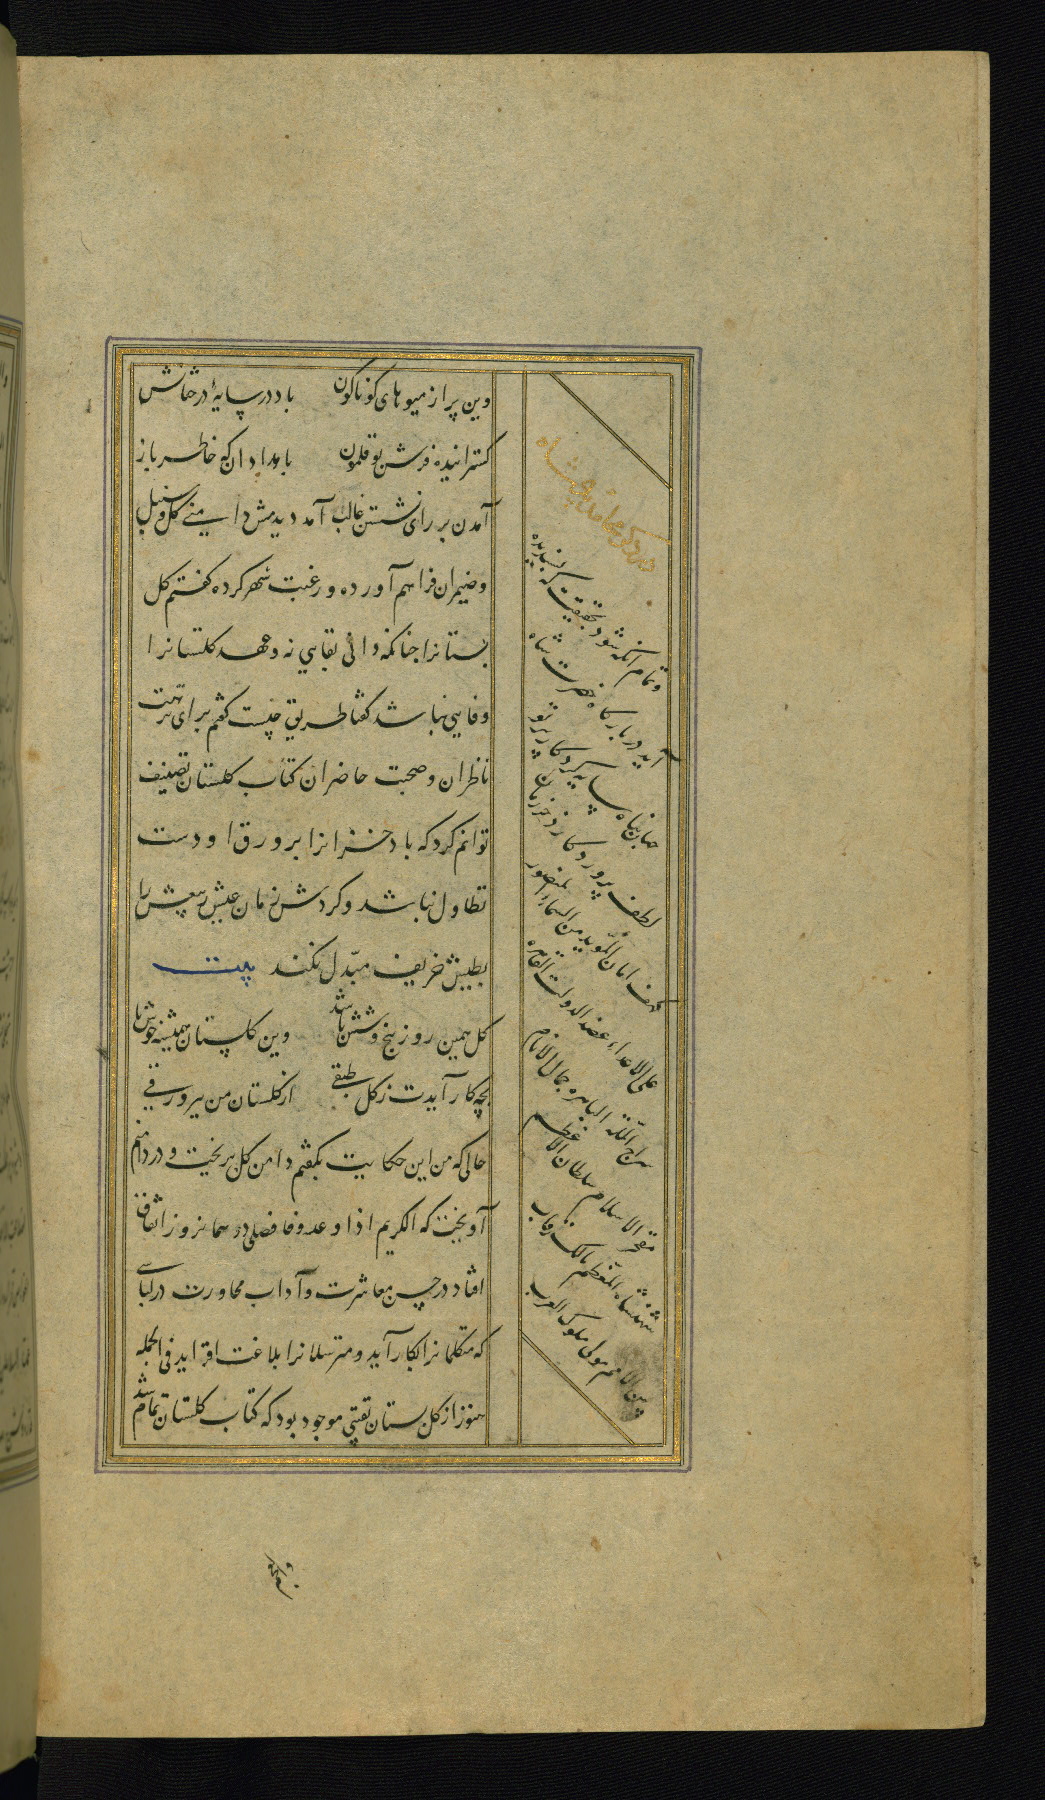 وین پر از میوهای گوناگون باد در سایهٔ درختانش
گسترانیده فرش بوقلمون بامدادان که خاطر باز
آمدن بر رای نشستن غالب آمد دیدمش دامنی گل و سنبل
و ضیمران فراهم آورده و رغبت شهر کرده گفتم گل
بستانرا چنانکه دانی بقایی نه و عهد گلستانرا
وفایی نباشد گفتا طریق چیست گفتم برای نزهت
ناظران و صحبت حاضران کتاب گلستان تصنیف
توانم کرد که باد خزانرا بر ورق او دست
تطاول نباشد و گردش زمان عیش ربیعش را
بطیش خریف مبدّل نکند بیت
گل همین روز پنج و شش باشد وین گلستان همیشه خوش باشد
بچه کار آیدت ز گل طبقی از گلستان من ببر ورقی
حالی که من این حکایت بگفتم دامن گل بریخت و در دامنم
آویخت که الکریم اذا وعد وفا فصلی دو همانروز اتفاق
افتاد در حسن معاشرت و آداب محاورت در لباسی
که متکلمانرا بکار آید و مترسلانرا بلاغت افزاید فی الجمله
هنوز از گل بستان بقیتی موجود بود که کتاب گلستان تمام شد
و تمام آنکه شود بحقیقت که پسندیده
آید در بارگاه حضرت شاه
جهان پناه سایه کردگار پرتو
لطف پروردگار ذخر زمان
کهف امان المؤید من السماء المنصور
علی الاعداء عضد الدولت القاهره
سراج الملّة الباهره جمال الانام
مفخر الاسلام سلطان الاعظم
شهنشاه المعظم مالک رقاب
الامم مولی ملوک العرب